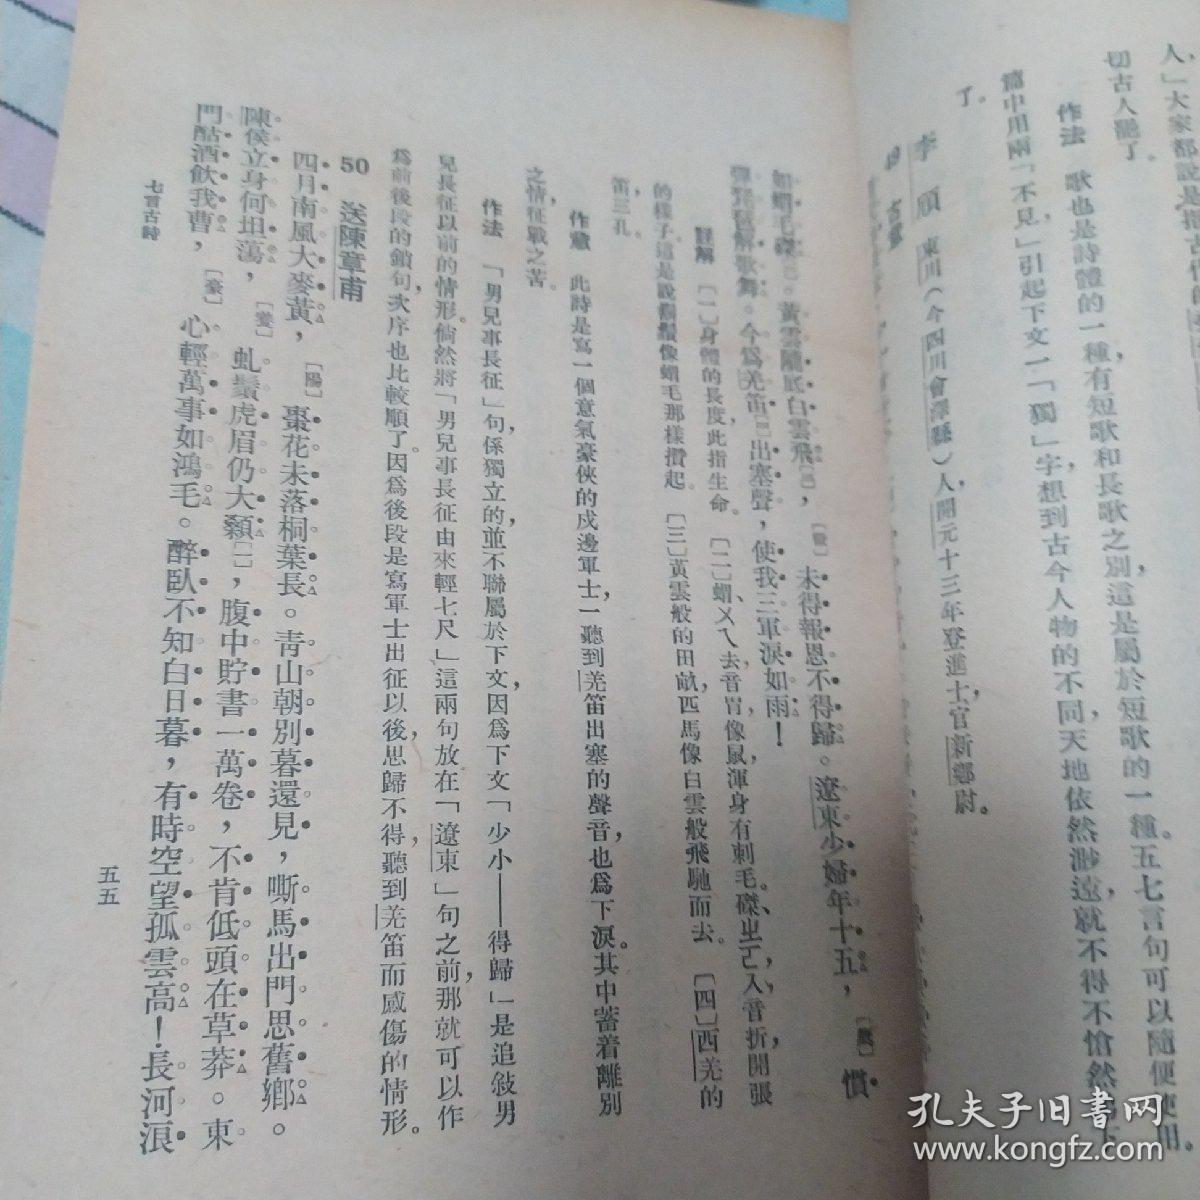 人」大家都說是指古情的
切古人罷了。
作法　歌也是詩體的一種，有短歌和長歌之別，這是屬於短歌的一種。五七言句可以隨便使用。
篇中用兩「不見」引起下文一「獨」字，想到古今人物的不同，天地依然渺遠，就不得不愴然
了。
李頎　東川（今四川會澤縣）人，開元十三年登進士，官新鄉尉。
49　古意
如蝟毛磔。黃雲隴底白雲飛，〔微〕未得報恩不得歸。遼東少婦年十五，〔麌〕慣
彈琵琶解歌舞。今爲羌笛出塞聲，使我三軍淚如雨！
註解　〔一〕身體的長度，此指生命。〔二〕蝟ㄨㄟ去音胃，像鼠，渾身有刺毛。磔、ㄓㄛ，入音折，開張
的樣子，這是說鬍鬚像蝟毛那樣攢起。〔三〕黃雲般的田畝，匹馬像白雲般飛馳而去。〔四〕西羌的
笛，三孔。
作意　此詩是寫一個意氣豪俠的戍邊軍士，一聽到羌笛出塞的聲音，也爲下淚。其中蓄着離別
之情，征戰之苦。
作法　「男兒事長征」句係獨立的，並不聯屬於下文，因爲下文「少小——得歸」是追敍男
兒長征以前的情形。倘然將「男兒事長征，由來輕七尺」這兩句放在「遼東」句之前，那就可以作
爲前後段的鎖句，次序也比較順了。因爲後段是寫軍士出征以後，思歸不得，聽到羌笛而感傷的情形。
50　送陳章甫
四月南風大麥黃，〔陽〕棗花未落桐葉長。青山朝別暮還見，嘶馬出門思舊鄉。
陳侯立身何坦蕩，〔養〕虬鬚虎眉仍大顙〔一〕，腹中貯書一萬卷，不肯低頭在草莽。東
門酤酒飲我曹，〔豪〕心輕萬事如鴻毛。醉臥不知白日暮，有時空望孤雲高！長河浪
七言古詩
五五
孔夫子旧书网
www.kongfz.com